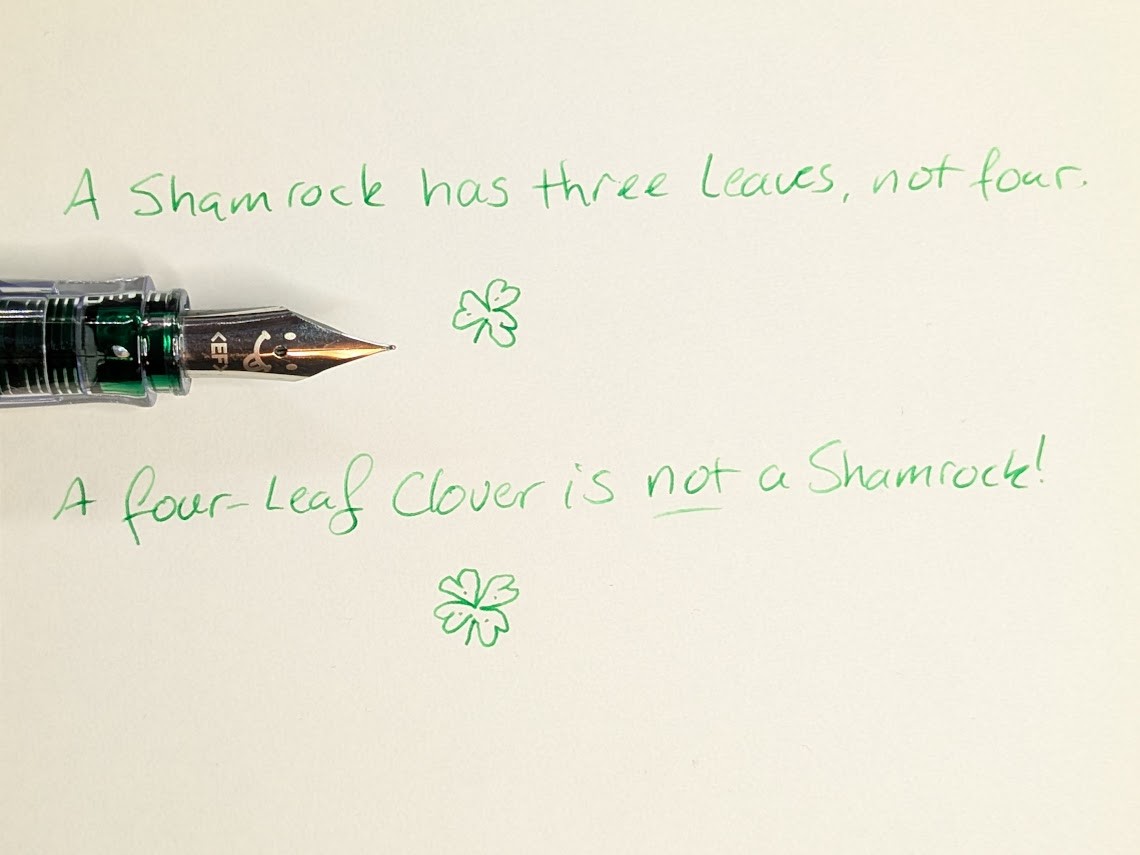 A Shamrock has three Leaves, not four.
<EF>
A four-Leaf Clover is not a Shamrock!